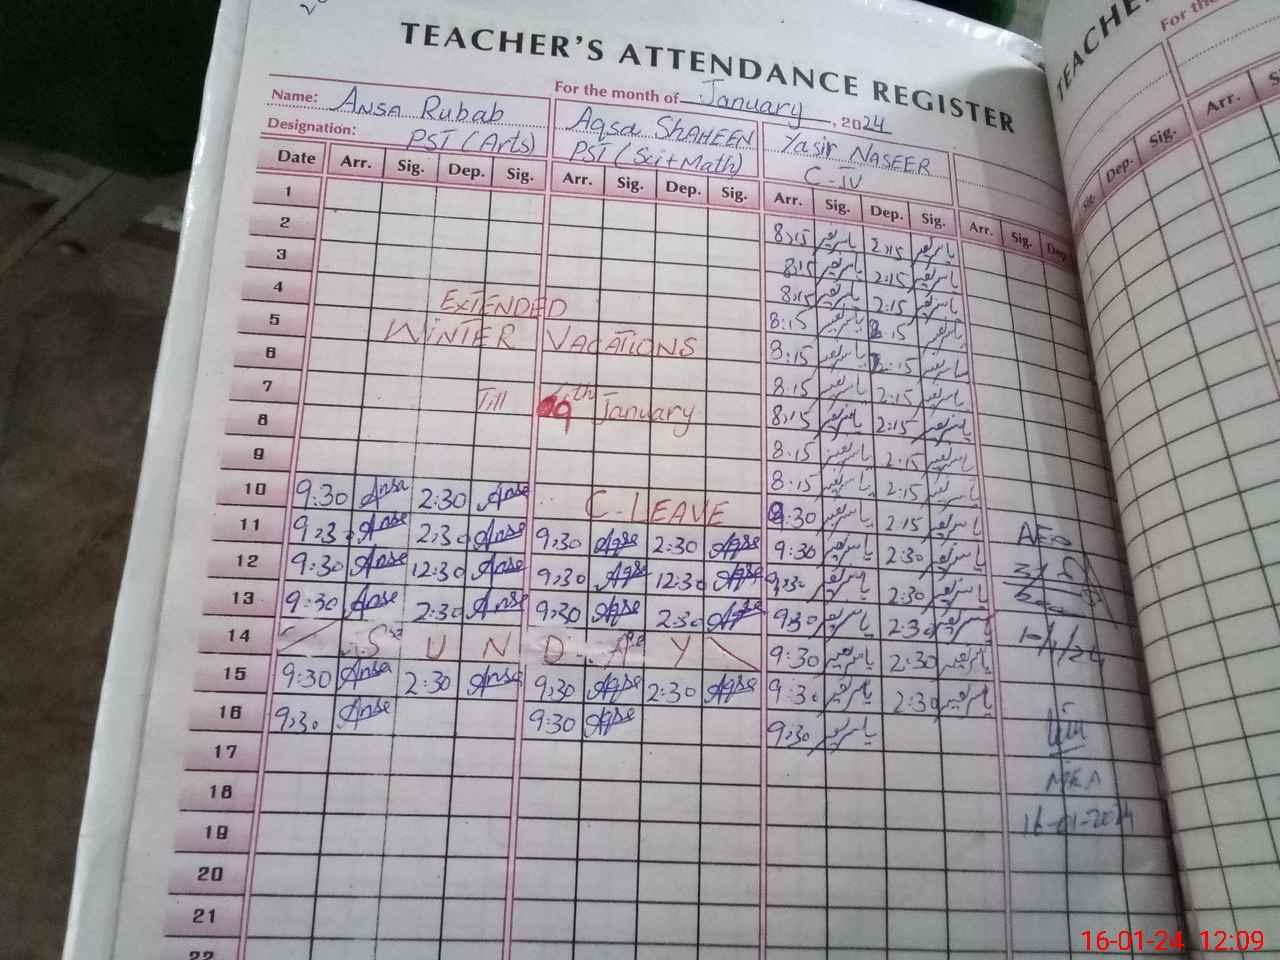 TEACHER'S ATTENDANCE REGISTER
For the month of January, 2024
Name: ANSA Rubab Aqsa SHAHEEN Yasir NASEER
Designation: PST (Arts) PST (Sci+Math) C-IV
Date Arr. Sig. Dep. Sig. Arr. Sig. Dep. Sig. Arr. Sig. Dep. Sig. Arr. Sig. Dep
1 8:15 یاسر نصیر 2:15 یاسر نصیر
2 8:15 یاسر نصیر 2:15 یاسر نصیر
3 8:15 یاسر نصیر 2:15 یاسر نصیر
4 8:15 یاسر نصیر 2:15 یاسر نصیر
EXTENDED
5 8:15 یاسر نصیر 2:15 یاسر نصیر
WINTER VACATIONS
6 8:15 یاسر نصیر 2:15 یاسر نصیر
7 8:15 یاسر نصیر 2:15 یاسر نصیر
Till 9th January
8 8:15 یاسر نصیر 2:15 یاسر نصیر
9 8:15 یاسر نصیر 2:15 یاسر نصیر
10 9:30 Ansa 2:30 Ansa C-LEAVE 9:30 یاسر نصیر 2:15 یاسر نصیر
11 9:30 Ansa 2:30 Ansa 9:30 Aqsa 2:30 Aqsa 9:30 یاسر نصیر 2:30 یاسر نصیر
12 9:30 Ansa 12:30 Ansa 9:30 Aqsa 12:30 Aqsa 9:30 یاسر نصیر 2:30 یاسر نصیر
13 9:30 Ansa 2:30 Ansa 9:30 Aqsa 2:30 Aqsa 9:30 یاسر نصیر 2:30 یاسر نصیر
14 SUNDAY 9:30 یاسر نصیر 2:30 یاسر نصیر
15 9:30 Ansa 2:30 Ansa 9:30 Aqsa 2:30 Aqsa 9:30 یاسر نصیر 2:30 یاسر نصیر
16 9:30 Ansa 9:30 Aqsa 9:30 یاسر نصیر
17
18
19
20
21
22
AEO
10/1/24
MEA
16-01-2024
TEACHE
For the
Arr. S
Sig. Dep. Sig.
16-01-24 12:09